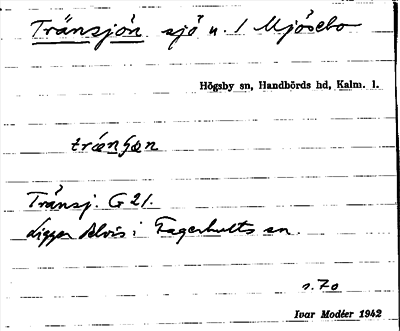 Tränsjön sjö n. 1 Mjösebo
Högsby sn, Handbörds hd, Kalm. l.
trä̀nʃɔn
Tränsj. G 21.
Ligger delvis i Fagerhults sn.
s. 70
Ivar Modéer 1942